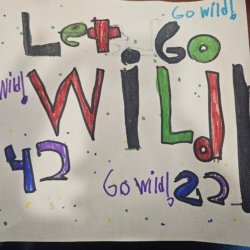 Go Wild!
Let Go
Wild!
WiLd!
42
Go Wild!
22